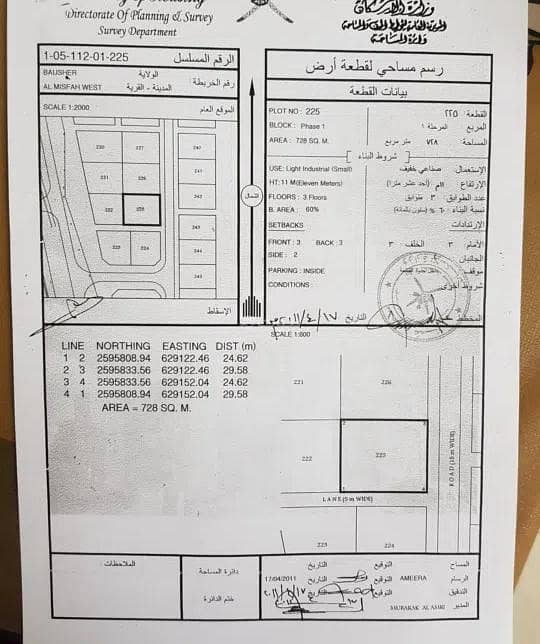 Directorate of Planning & Survey
Survey Department
الرقم المسلسل 1-05-112-01-225
BAUSHER الولاية
AL MISFAH WEST المدينة - القرية رقم الخريطة
SCALE 1:2000 الموقع العام
230 227 240
231 226 241
232 225 242
223 224 243
244
245
الإسقاط
الشمال
رسم مساحي لقطعة أرض
بيانات القطعة
PLOT NO : 225 القطعة ٢٢٥
BLOCK : Phase 1 المربع المرحلة ١
AREA : 728 SQ. M. المساحة ٧٢٨ متر مربع
شروط البناء
USE: Light Industrial (Small) الإستعمال صناعي خفيف
HT: 11 M(Eleven Meters) الإرتفاع ١١م (أحد عشر مترا)
FLOORS : 3 Floors عدد الطوابق ٣ طوابق
B. AREA : 60% نسبة البناء ٦٠% (ستون بالمائة)
SETBACKS الإرتدادات
FRONT : 3 BACK : 3 الأمام ٣ الخلف ٣
SIDE : 2 الجانبان
PARKING : INSIDE موقف
شروط أخرى
المخطط
التاريخ ٢٠١١/٤/١٧
SCALE 1:600
LINE NORTHING EASTING DIST (m)
1 2 2595808.94 629122.46 24.62
2 3 2595833.56 629122.46 29.58
3 4 2595833.56 629152.04 24.62
4 1 2595808.94 629152.04 29.58
AREA = 728 SQ. M.
221 226
222 225
LANE (5 m WIDE)
ROAD (15 m WIDE)
223 224
الملاحظات :
دائرة المساحة
ختم الدائرة
المساح التوقيع التاريخ
الرسام AMEERA التوقيع التاريخ 17/04/2011
التدقيق التوقيع التاريخ
المدير MUBARAK AL AMRI التوقيع